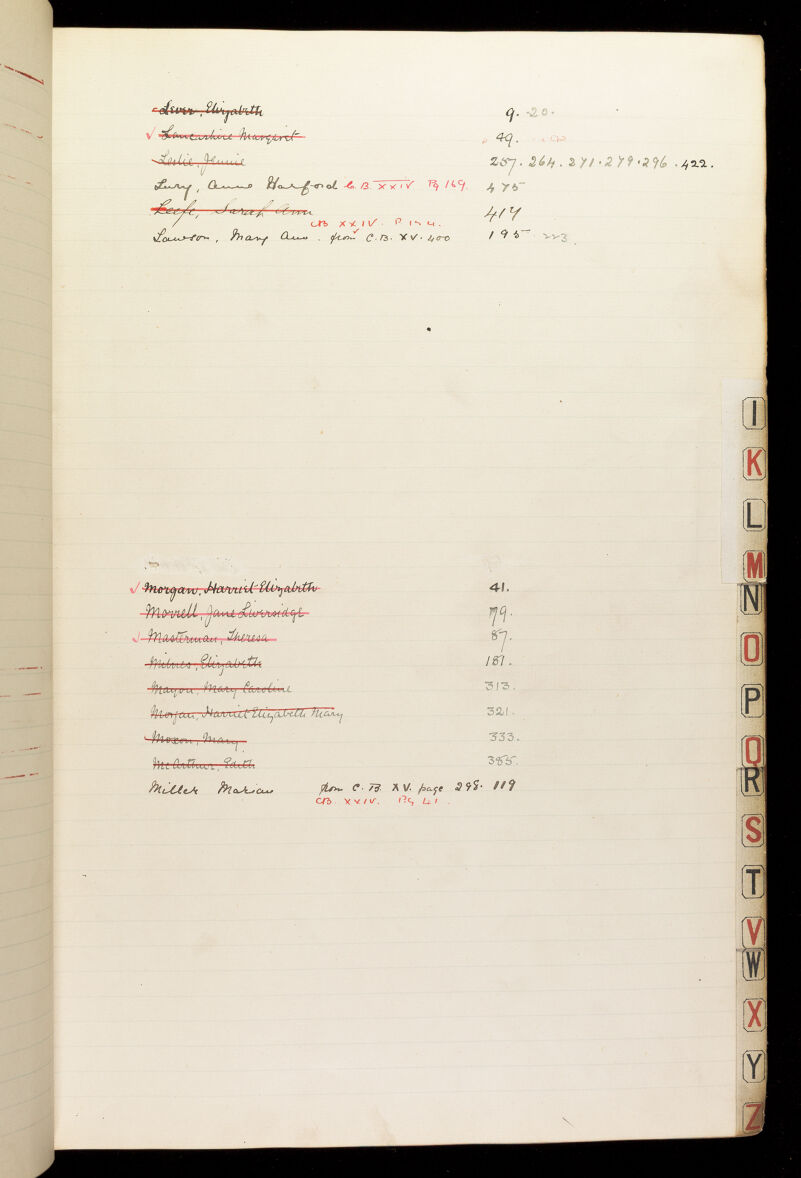 Lever, Elizabeth 9. 20.
✓ Lancashire Margaret 49.
Leslie, Jennie 257. 264. 271. 279. 296. 422.
Lury, Anne Harford C. B. XXIV Pg 169. 475
Keefe, Sarah Ann 417
CB XXIV. P 154.
Lawson, Mary Ann. from C.B. XV. 400 195 223.
✓ Morgan, Harriet Elizabeth 41.
Morrell, Jane Liversidge 79.
✓ Masterman, Theresa 87.
Milnes, Elizabeth 181.
Mayon, Mary Caroline 313.
Morgan, Harriet Elizabeth Mary 321.
Moxon, Mary 333.
McArthur, Edith 355.
Miller Marian from C. B. XV. page 298. 119
CB. XXIV. Pg 41.
I
K
L
M
N
O
P
Q
R
S
T
V
W
X
Y
Z